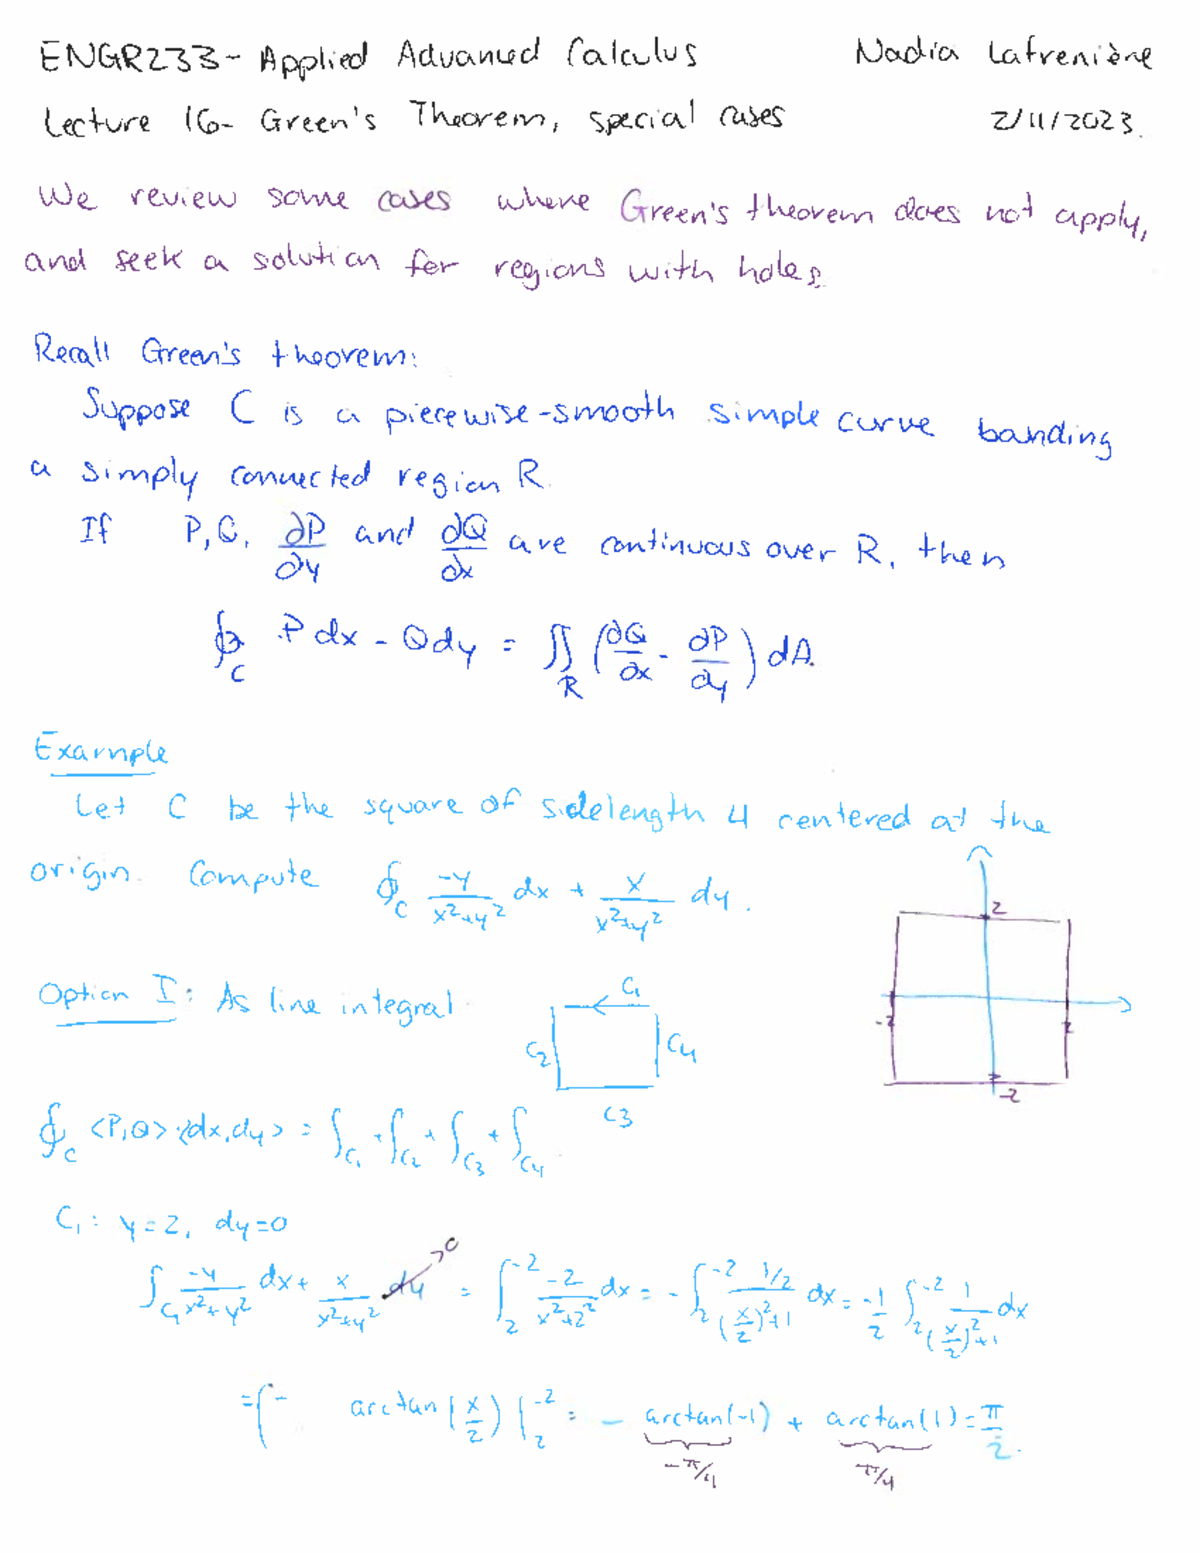 ENGR233- Applied Advanced Calculus Nadia Lafrenière
Lecture 16- Green's Theorem, special cases 2/11/2023.
We review some cases where Green's theorem does not apply,
and seek a solution for regions with holes.
Recall Green's theorem:
Suppose C is a piecewise-smooth simple curve bounding
a simply connected region R.
If P, Q, ∂P/∂y and ∂Q/∂x are continuous over R, then
∮_C P dx - Q dy = ∬_R (∂Q/∂x - ∂P/∂y) dA.
Example
Let C be the square of sidelength 4 centered at the
origin. Compute ∮_C -y/(x²+y²) dx + x/(x²+y²) dy.
2
-2
2
-2
Option I: As line integral
C₁
C₂
C₄
C3
∮_C <P,Q>·<dx,dy> = ∫_C₁ + ∫_C₂ + ∫_C3 + ∫_C4
C₁: y=2, dy=0
∫_C₁ -y/(x²+y²) dx + x/(x²+y²) dy → 0 = ∫_2^-2 -2/(x²+2²) dx = -∫_2^-2 (1/2)/((x/2)²+1) dx = -1/2 ∫_2^-2 1/((x/2)²+1) dx
= - arctan(x/2) |_2^-2 = - arctan(-1) + arctan(1) = π/2.
-π/4 π/4